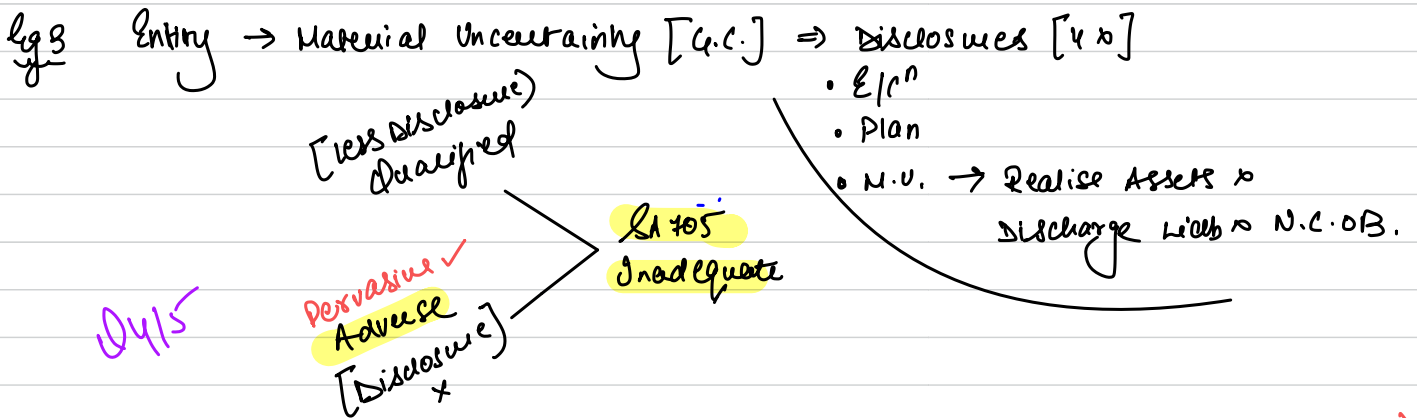 Eg 3 Entity → Material Uncertainty [G.C.] ⇒ Disclosures [4 x]
• E/Cⁿ
• Plan
• M.U. → Realise Assets x
Discharge Liab x N.C.OB.
[Less Disclosure]
Qualified
SA 705
Inadequate
Pervasive ✓
Adverse
[Disclosure]
x
Q4/5